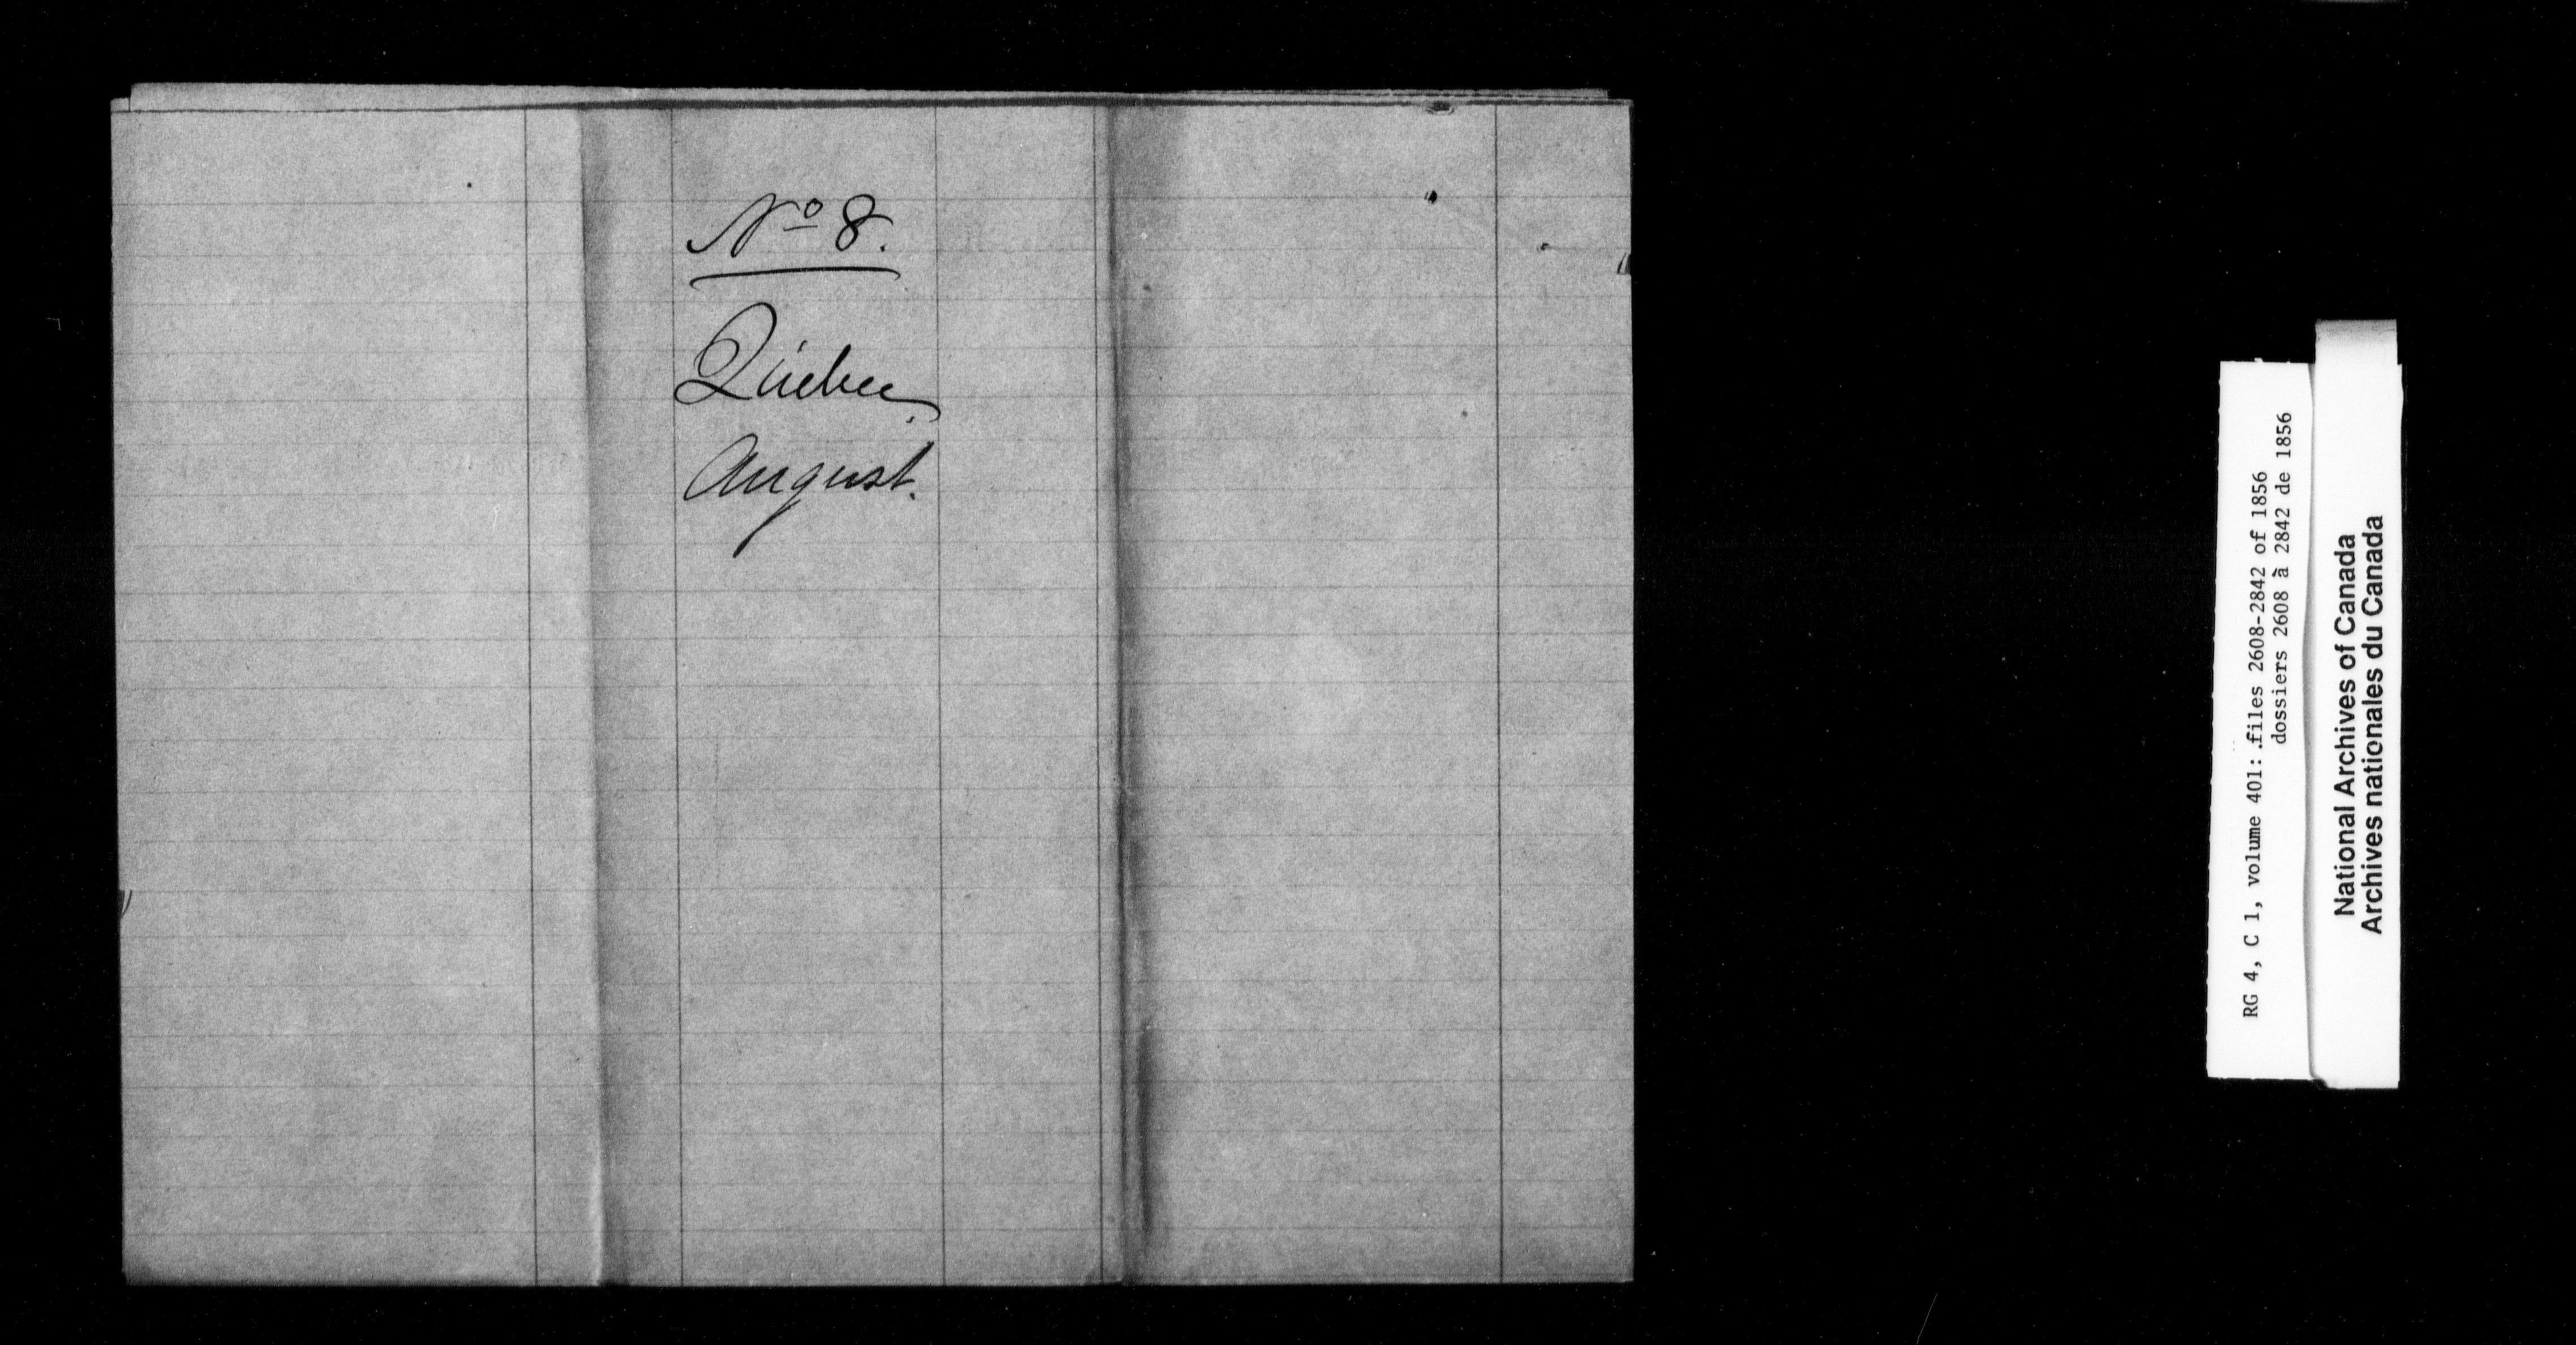 Nº 8.
Quebec.
August.
RG 4, C 1, volume 401: files 2608-2842 of 1856
dossiers 2608 à 2842 de 1856
National Archives of Canada
Archives nationales du Canada